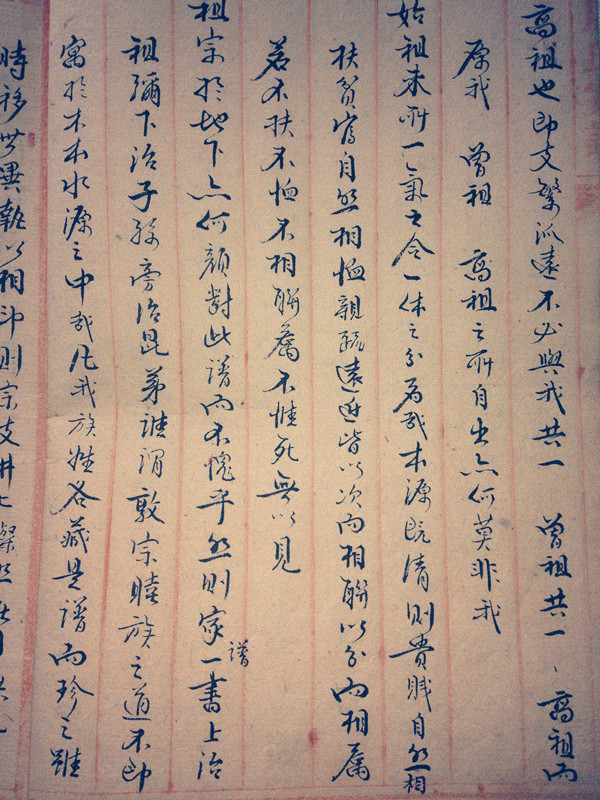 高祖也即支繁派遠不必與我共一 曾祖共一、高祖而
原我 曾祖 高祖之所自出亦何莫非我
始祖未所一氣之合一体之分為哉本源既清則貴賤自然相
扶貧富自然相恤親疏遠近皆以次而相聯以分而相屬
若不扶不恤不相聯屬不惟死無以見
祖宗於地下亦何顏對此譜而不愧乎然則家譜一書上治
祖禰下治子孫旁治昆弟誰謂敦宗睦族之道不即
寓於木本水源之中哉凡我族姓各藏是譜而珍之雖
時移世異執以相印則宗支井井燦然